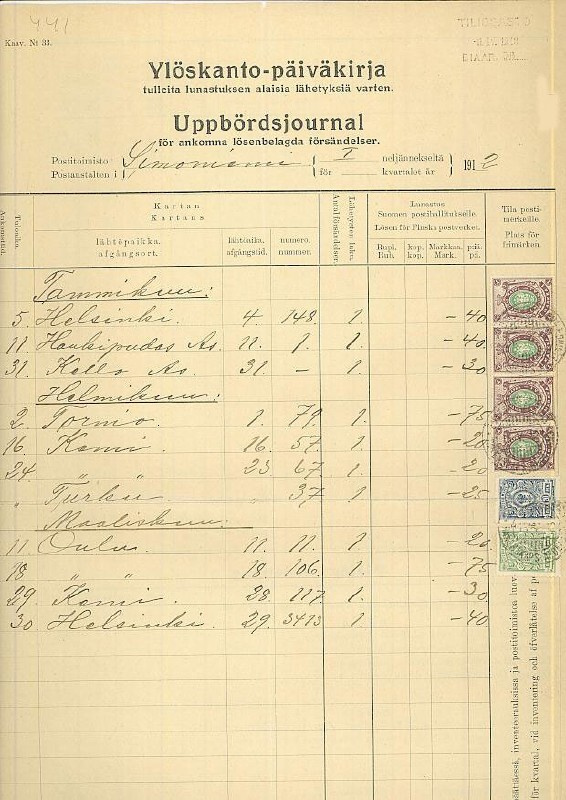 441
Kaav. № 31.
TILIOSASTO
Ylöskanto-päiväkirja
tulleita lunastuksen alaisia lähetyksiä varten.
Uppbördsjournal
för ankomna lösenbelagda försändelser.
Postitoimisto Simoniemi I neljännekseltä
Postanstalten i för kvartalet år 1912
Tulonika. Ankomsttid.
Kartan
Kartans
lähtöpaikka. afgångsort.
lähtöaika. afgångstid.
numero. nummer.
Lähetysten luku. Antal försändelser.
Lunastus Suomen postihallitukselle. Lösen för Finska postverket.
Rupl. Rub. kop. kop. Markkaa. Mark. p:iä. p:i.
Tila postimerkeille. Plats för frimärken.
Tammikuu:
5. Helsinki. 4. 148. 1. – 40
11 Haukipudas As. 11. 1. 1. – 40
31. Kello As 31. – 1. – 30
Helmikuu:
2. Tornio. 1. 79. 1. – 75
16. Kemi 16. 57. 1. – 20
24. " " 23 67 1. – 20
" Turku " 37 1 – 25
Maaliskuu:
11. Oulu 11. 11. 1 – 20
18 " " 18. 106. 1. – 75
29. Kemi . 28. 117. 1. – 30
30 Helsinki. 29. 3413 1. – 40
för kvartal, vid inventering och öfverlåtelse af